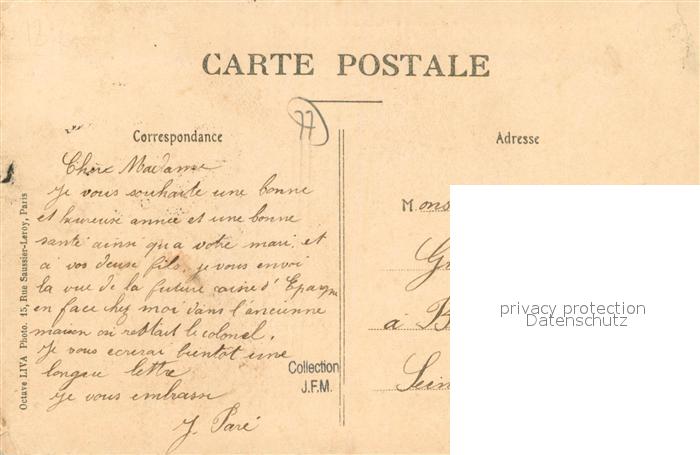 CARTE POSTALE
77
Correspondance
Adresse
Chère Madame
Je vous souhaite une bonne
et heureuse année et une bonne
santé ainsi qu'a votre mari et
a vos deux fils. je vous envoi
la vue de la future caisse d'Epargne
en face chez moi dans l'ancienne
maison où restait le colonel.
Je vous ecrirai bientot une
longue lettre
Je vous embrasse
J. Paré
Mons
à B
Sein
Collection
J.F.M.
Octave LIVA Photo. 15, Rue Saussier-Leroy, Paris
privacy protection
Datenschutz